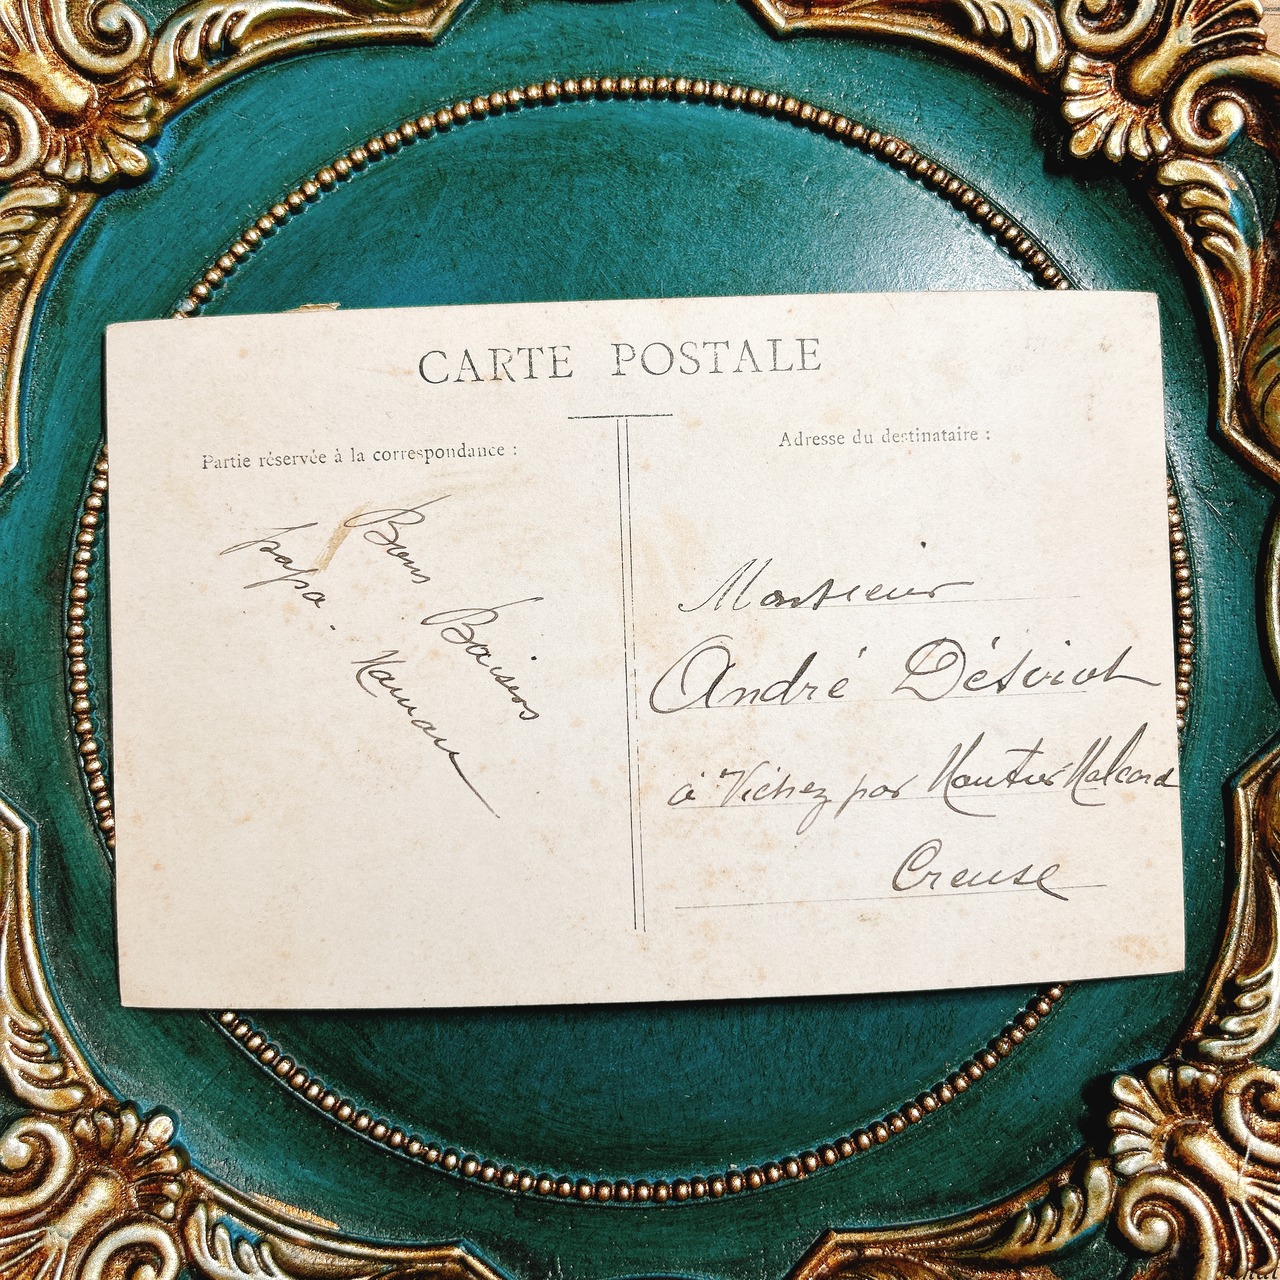 CARTE POSTALE
Partie réservée à la correspondance :
Adresse du destinataire :
Bons Baisers
papa. Maman
Monsieur
André
à Vichez par Moutier Malcard
Creuse